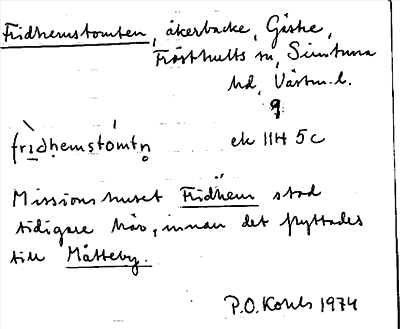 Fridhemstomten, åkerbacke, Gåshe,
Frösthults sn, Simtuna
hd, Västm. l.
frìdhemstómtn̥
ek 11H 5c
Missionshuset Fridhem stod
tidigare här, innan det flyttades
till Måtteby.
P.O. Kohls 1974